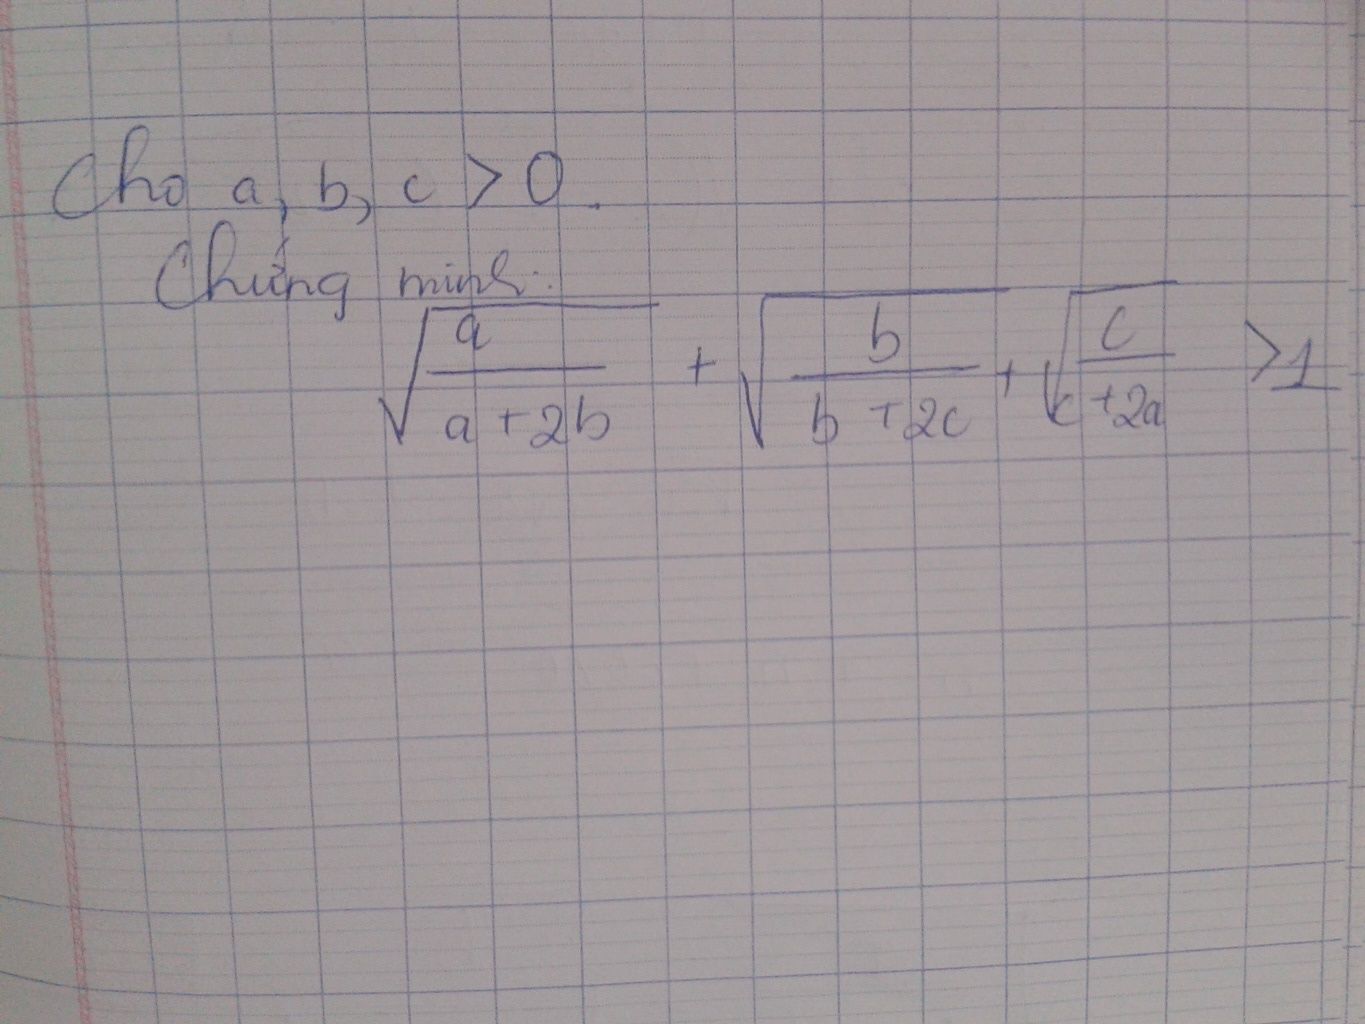 Cho a, b, c > 0.
Chứng minh:
√(a/(a+2b)) + √(b/(b+2c)) + √(c/(c+2a)) > 1